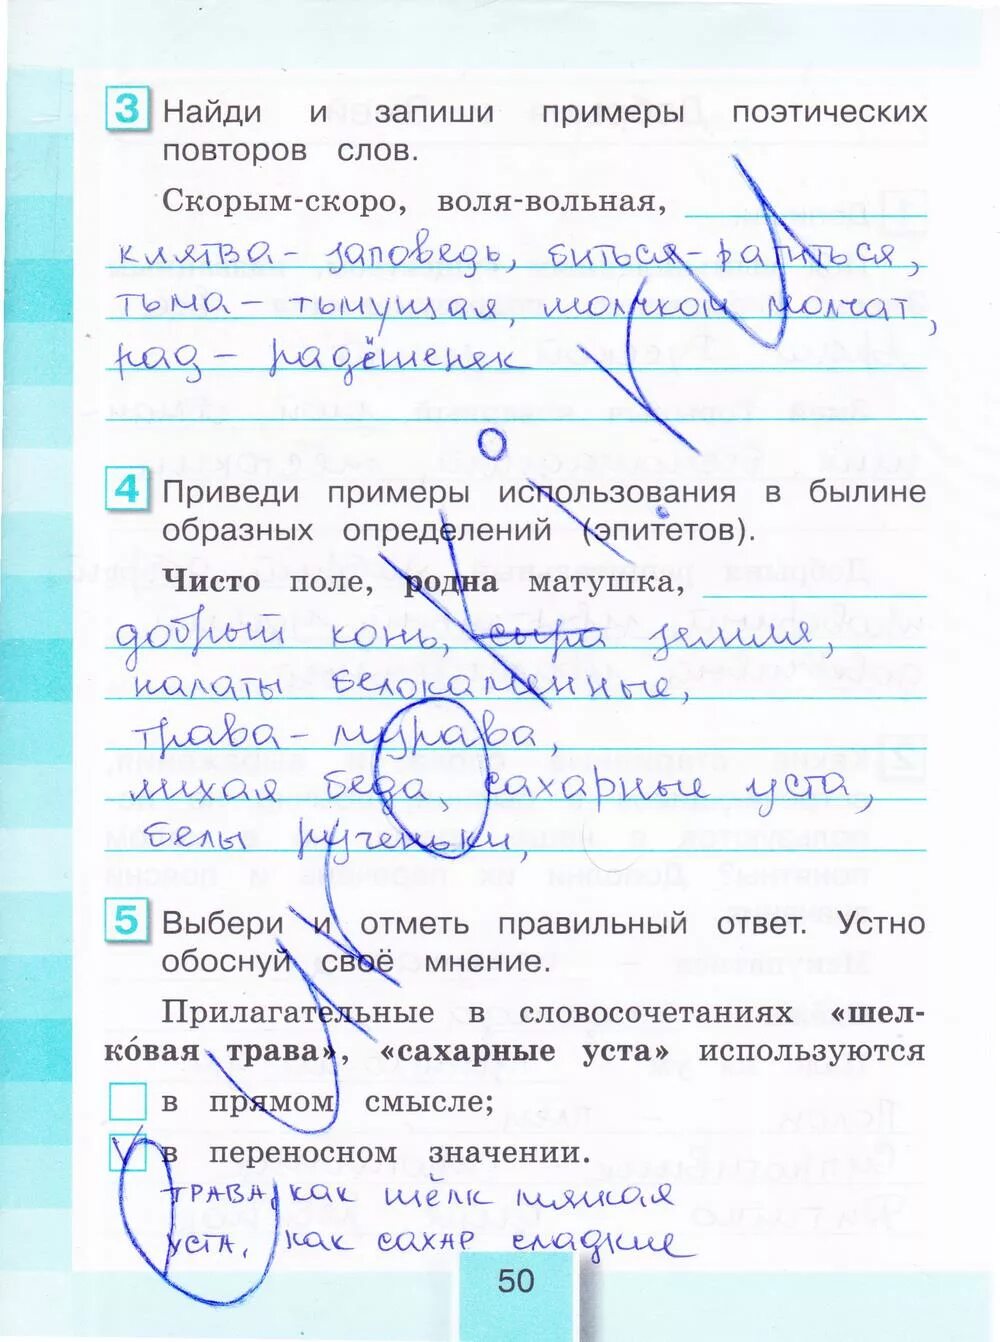 3 Найди и запиши примеры поэтических
повторов слов.
Скорым-скоро, воля-вольная,
клятва - заповедь, биться - ратиться,
тьма - тьмущая, молчком молчат,
рад - радёшенек
4 Приведи примеры использования в былине
образных определений (эпитетов).
Чисто поле, родна матушка,
добрый конь, сыра земля,
палаты белокаменные,
трава - мурава,
лихая беда, сахарные уста,
белы рученьки,
5 Выбери и отметь правильный ответ. Устно
обоснуй своё мнение.
Прилагательные в словосочетаниях «шел-
ко́вая трава», «сахарные уста» используются
в прямом смысле;
V в переносном значении.
ТРАВА, как шёлк мягкая
УСТА, как САХАР сладкие
50